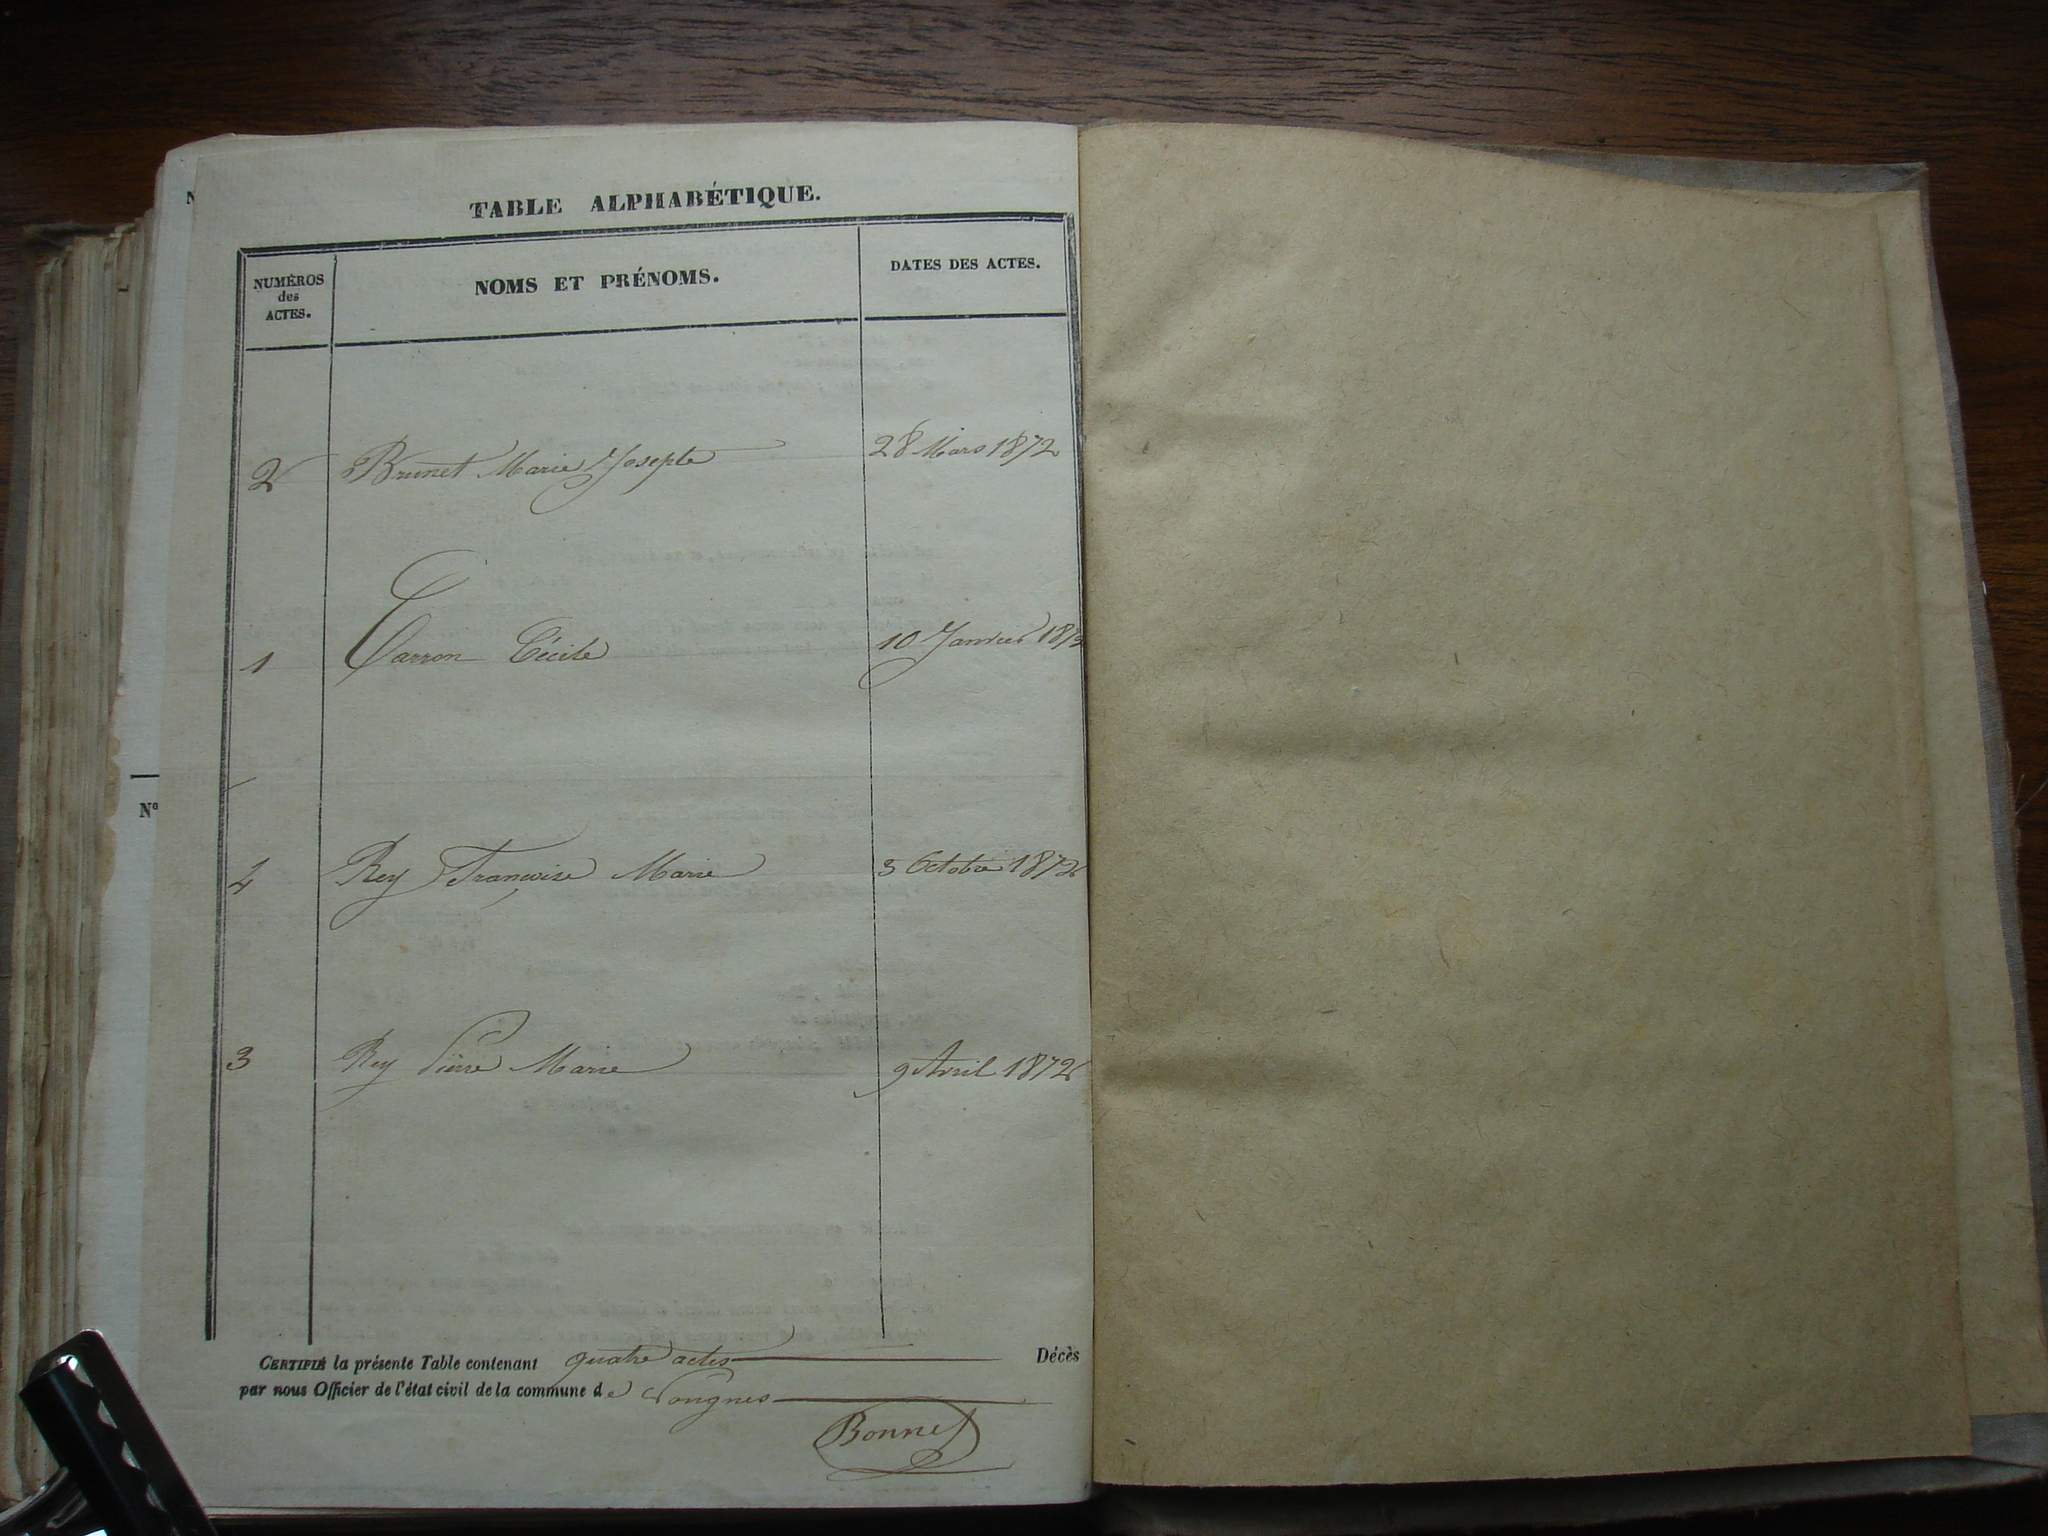 TABLE ALPHABÉTIQUE.
NUMÉROS des ACTES.
NOMS ET PRÉNOMS.
DATES DES ACTES.
2 Brunet Marie Josepte 28 Mars 1872
1 Carron Cécile 10 Janvier 1872
4 Rey Françoise Marie 3 Octobre 1872
3 Rey Pierre Marie 9 Avril 1872
Nº
CERTIFIÉ la présente Table contenant quatre actes Décès
par nous Officier de l'état civil de la commune de Songnes
Bonnet